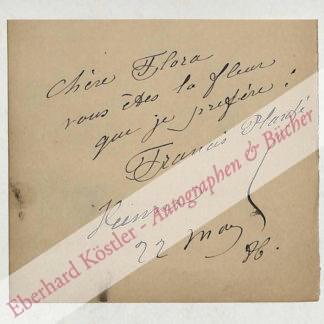 Chère Flora
vous êtes la fleur
que je préfère !
Francis Planté
22 May 86.
Eberhard Köstler - Autographen & Bücher